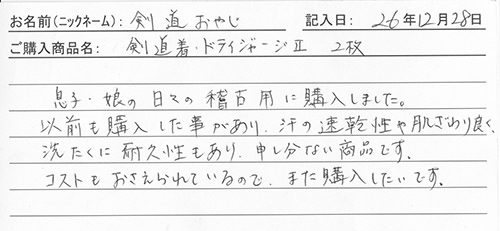 お名前(ニックネーム): 剣道おやじ 記入日: 26年12月28日
ご購入商品名: 剣道着・ドライジャージⅡ 2枚
息子・娘の日々の稽古用に購入しました。
以前も購入した事があり、汗の速乾性や肌ざわり良く、
洗たくに耐久性もあり、申し分ない商品です。
コストもおさえられているので、また購入したいです。